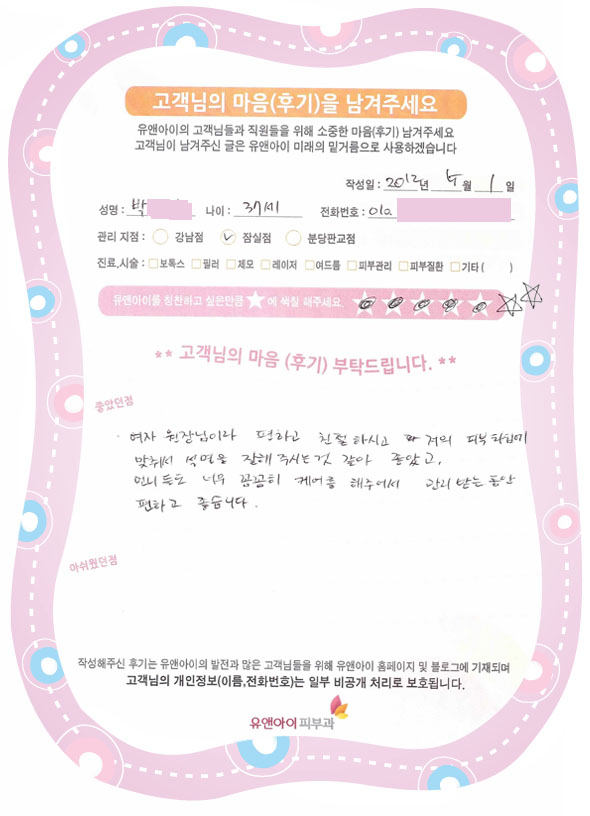 고객님의 마음(후기)을 남겨주세요
유앤아이의 고객님들과 직원들을 위해 소중한 마음(후기) 남겨주세요
고객님이 남겨주신 글은 유앤아이 미래의 밑거름으로 사용하겠습니다
작성일 : 2012년 4월 1일
성명 : 박 나이 : 37세 전화번호 : 010
관리 지점 : 강남점 잠실점 분당판교점
진료,시술 : 보톡스 필러 제모 레이저 여드름 피부관리 피부질환 기타 ( )
유앤아이를 칭찬하고 싶은만큼 ★에 색칠 해주세요.
** 고객님의 마음 (후기) 부탁드립니다. **
좋았던점
여자 원장님이라 편하고 친절하시고 저의 피부타입에
맞춰서 설명을 잘해주시는것 같아 좋았고,
언니들도 너무 꼼꼼히 케어를 해주어서 관리 받는동안
편하고 좋습니다.
아쉬웠던점
작성해주신 후기는 유앤아이의 발전과 많은 고객님들을 위해 유앤아이 홈페이지 및 블로그에 기재되며
고객님의 개인정보(이름,전화번호)는 일부 비공개 처리로 보호됩니다.
유앤아이피부과